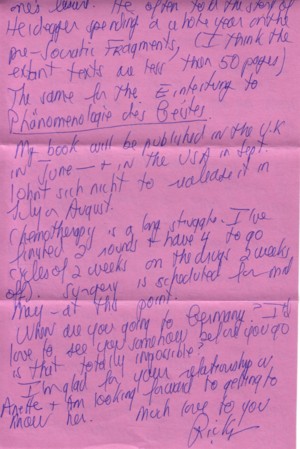 ones lewis. He often told the story of
Heidegger spending a whole year on the
pre-Socratic Fragments, (I think the
extant texts are less than 50 pages)
The same for the Einleitung to
Phänomenologie des Geistes.
My book will be published in the U.K
in June — & in the USA in Sept.
lohnt sich nicht to release it in
July or August.
Chemotherapy is a long struggle. I've
finished 2 rounds & have 4 to go
cycles of 2 weeks on the drugs 2 weeks
off. Surgery is scheduled for mid
May - at this point.
When are you going to Germany? I'd
love to see you somehow before you go
is that totally impossible?
I'm glad for your relationship w
Anette & am looking forward to getting to
know her. Much love to you
Ricky